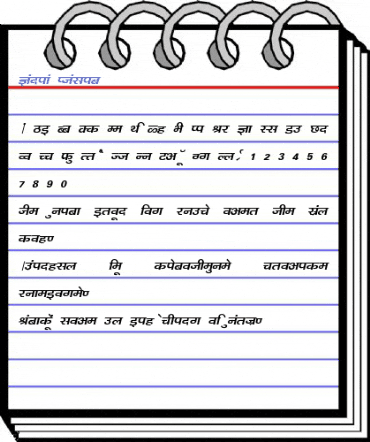 ज्ञंदपां प्जंसपब
। ठइ ब्ब क्क म्म र्थ ळ्ह भै प्प श्रर ज्ञा स्स डउ छद
व्व च्च फु त्त ज्ज न्न टअ ग्ग ल्ल 1 2 3 4 5 6
7 8 9 0
जीम ुनपबा इतवूद विग रनउचे वअमत जीम संल
कवहण
।उंपदहसल भू कपेबवजीमुनमे चतवअपकम
रनामइवगमेण
श्रंबाकूे सवअम उल इपह ेचीपदग व िुनंतज्रण